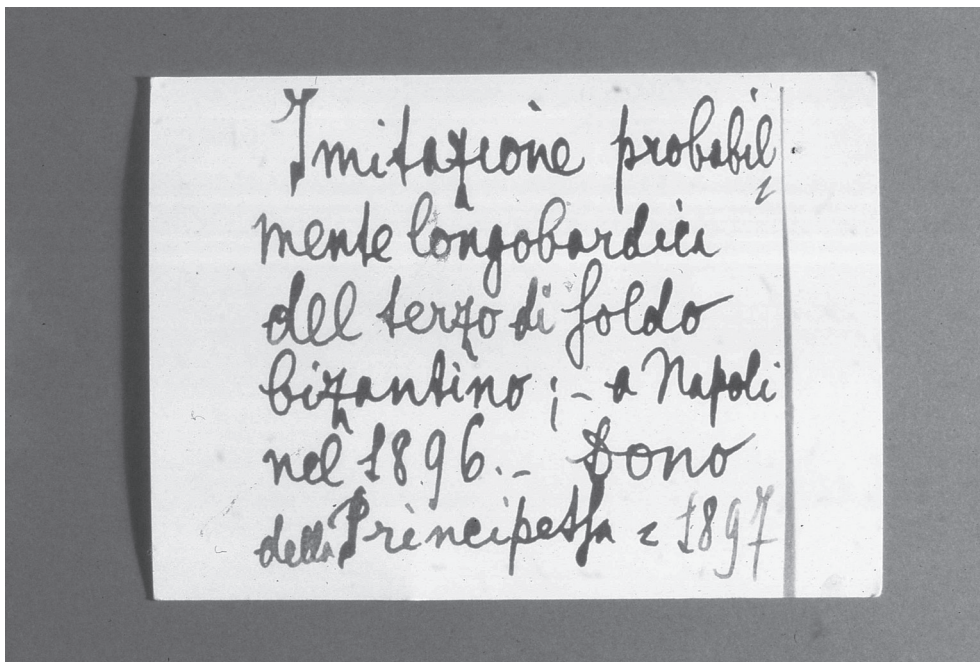 Imitazione probabil=
mente longobardica
del terzo di soldo
bizantino; - a Napoli
nel 1896. - Dono
della Principessa = 1897